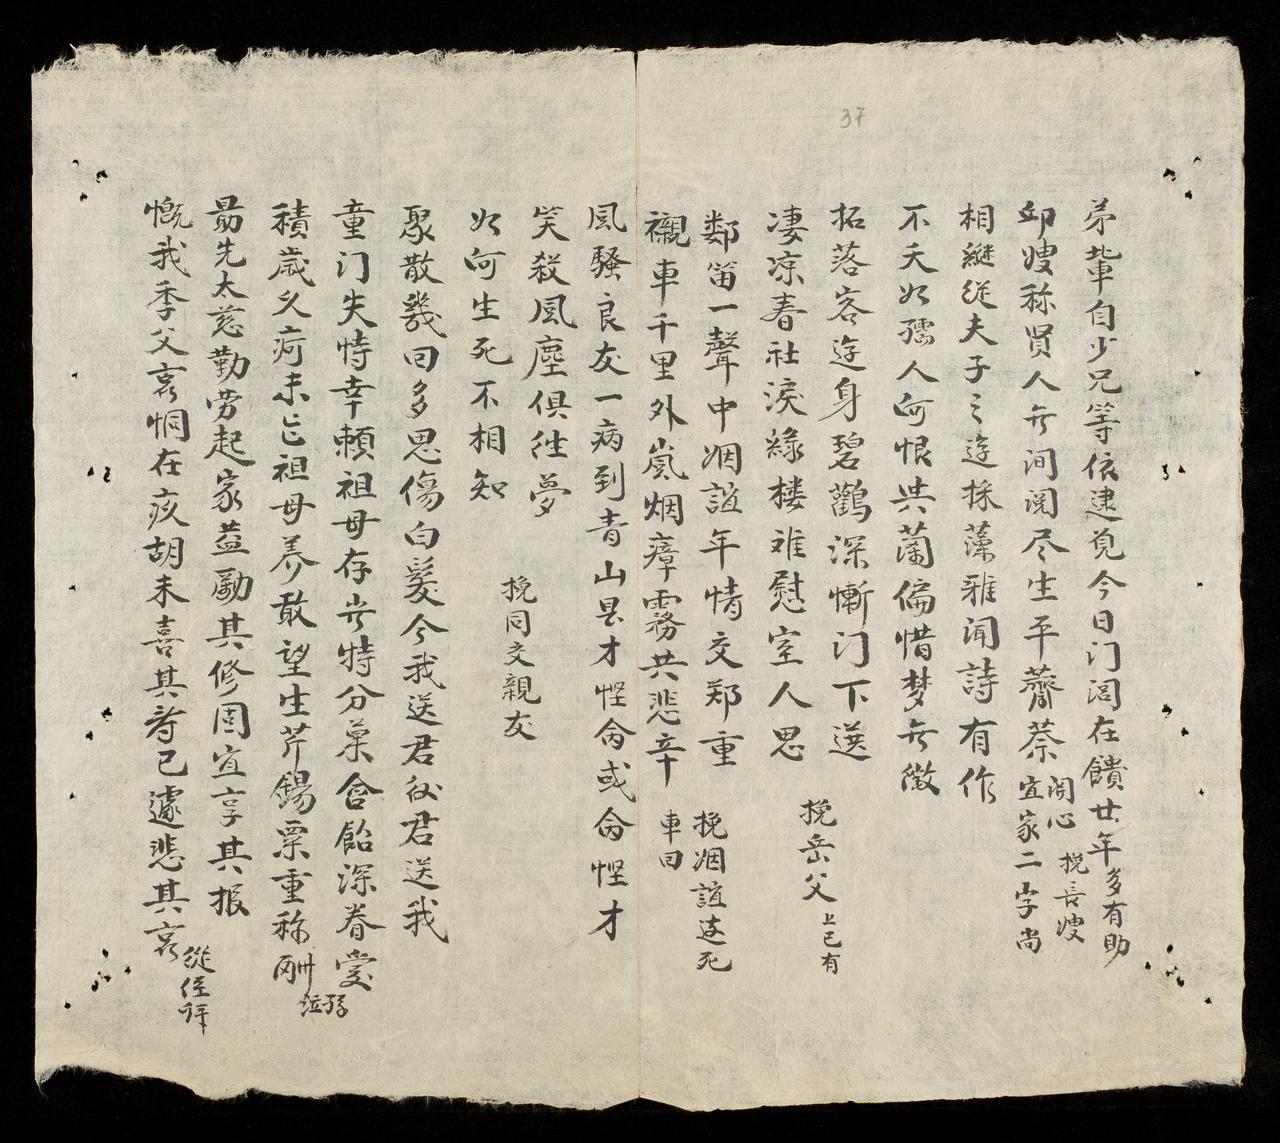 37
弟輩自少兄等依建覓今日门闾在饋廿年多有助
邱嫂称贤人无间阅尽生平薺荼宜家二字尚
関心
挽長嫂
相繼從夫子之逰採藻雅闻詩有作
不夭如孺人何恨共蘭偏惜梦无徵
拓落客逰身碧鸛深慚门下選
凄凉春社淚綠楼难慰室人思
挽岳父
上已有
鄰笛一聲中姻誼年情交郑重
襯車千里外嵐烟瘴霧共悲辛
挽姻誼迯死
車回
風騷良友一病到青山畏才慳命或命慳才
笑殺風塵俱徃夢
如何生死不相知
挽同交親友
聚散幾囬多思傷白髮今我送君後君送我
童门失恃幸頼祖母存劳特分菓含飴深眷愛
積歲久疴未忘祖母养敢望生芹錫粟重称酬
孫泣
最先太慈勤劳起家益勵其修固宜享其报
慨我季父哀恫在疚胡未喜其寿已遽悲其哀
從侄拜